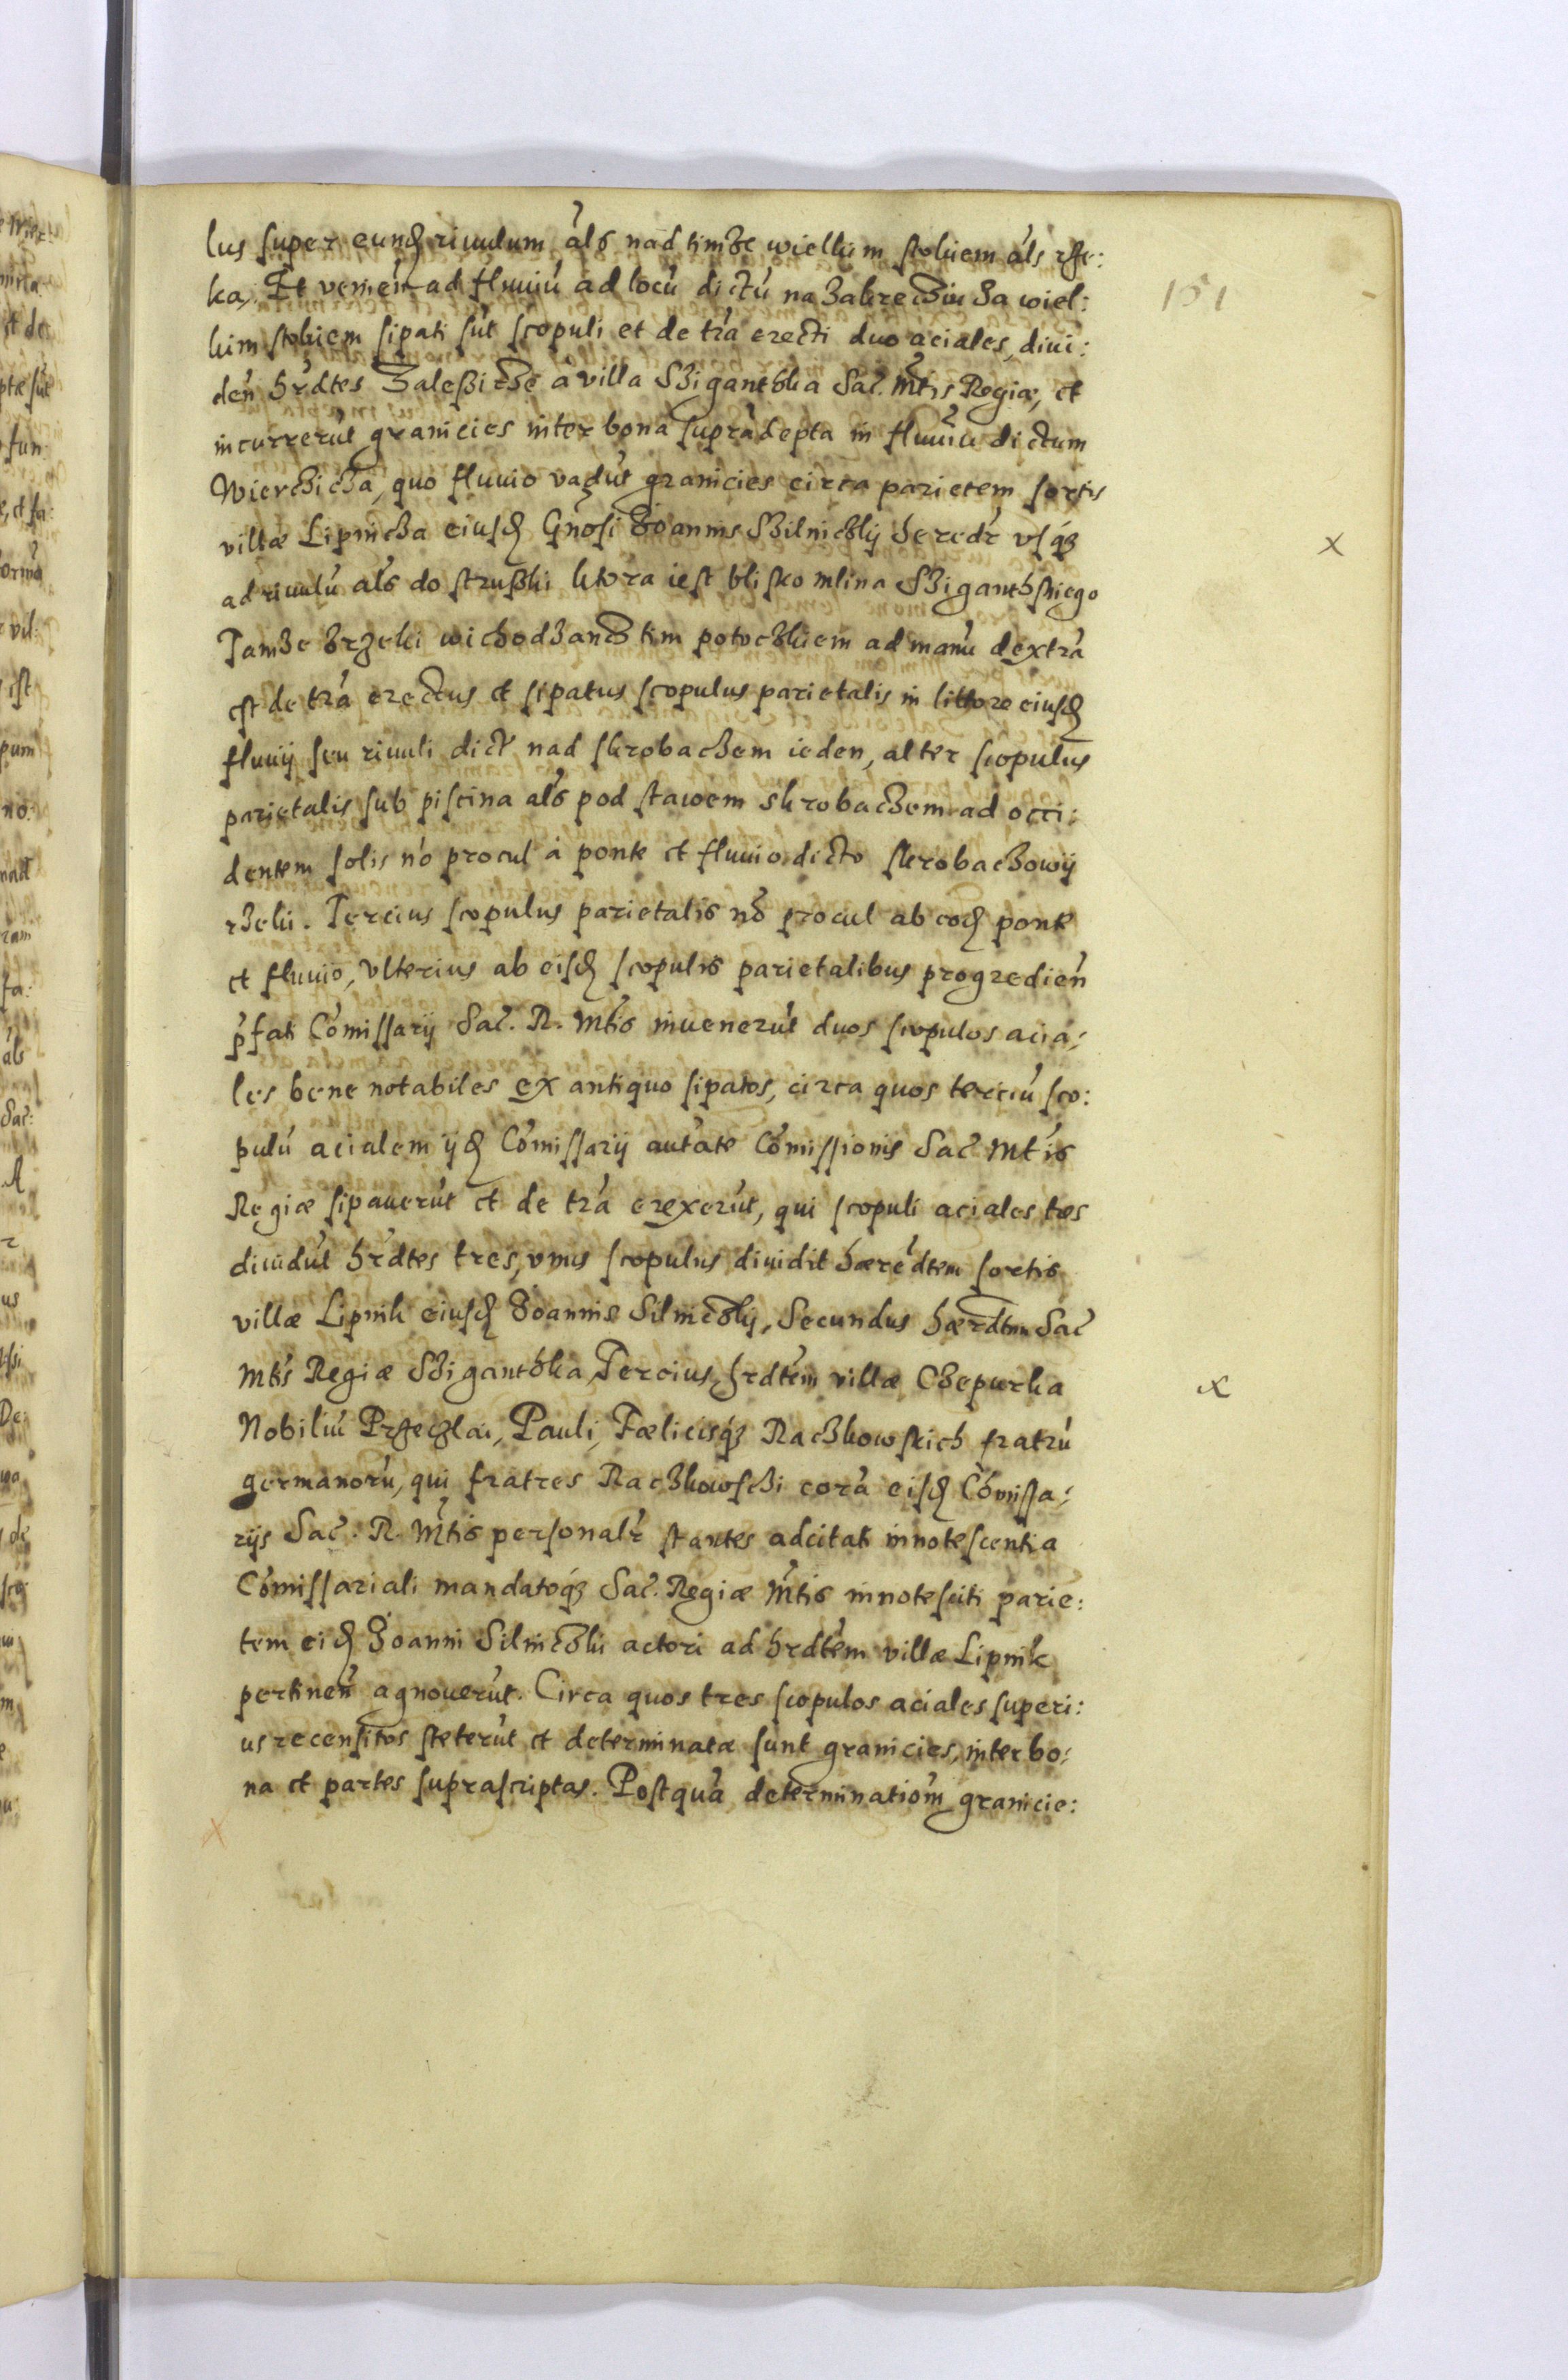 lus super eund rivulum als nad timze wielkim stokiem als rze:
ka. Et venien ad fluuiu ad locu dictu na Zakreczin Za wiel:
kim stokiem sipati sut scopuli et de tra erecti duo aciales, diui:
den hrdtes Zalesicze à villa Sziganthka Sac. Mtis Regiæ, et
incurrerut granicies inter bona supradepta in fluuiu dictum
Wierczicza, quo fluuio vadut granicies circa parietem sortis
villæ Lipnicza eiusd Gnosi Joannis Szilniczkij heredr usq3
ad riuulu als do struszki ktora iest blisko mlina Sziganthskiego
Tamze Zrzeki wichodzancz tim potoczkiem ad manu dextra
est de tra erectus et sipatus scopulus parietalis in littore eiusd
fluuij seu riuuli dict nad skrobaczem ieden, alter scopulus
parietalis sub piscina als pod stawem skrobaczem ad occi:
dentem solis no procul à ponte et fluuio dicto skrobaczowij
rzeki. Tercius scopulus parietalis no procul ab eod ponte
et fluuio, Vlterius ab eisd scopulis parietalibus progredien
pfati Comissarij Sac. R. Mtis inuenerut duos scopulos acia:
les bene notabiles ex antiquo sipatos, circa quos terciu sco:
pulu acialem ijd Comissarij autate Comissionis Sac Mtis
Regiæ sipauerut et de tra erexerut, qui scopuli aciales tres
diuidut hrdtes tres, vnus scopulus diuidit hæredtem sortis
villæ Lipnik eiusd Joannis Silniczkij, Secundus hærdtem Sac
Mtis Regiæ Sziganthka, Tercius, hrdtem villæ Czepurka
Nobiliu Przeczlai, Pauli, Fælicisq3 Raczkowskich fratru
germanoru, qui fratres Raczkowsczi cora eisd Comissa:
rijs Sac. R. Mtis personalr stantes adcitati innotescentia
Comissariali mandatoq3 Sac. Regiæ Mtis innotesciti parie:
tem eid Joanni Silniczkii actori ad hrdtem villæ Lipnik
pertinen agnouerut. Circa quos tres scopulos aciales superi:
us recensitos steterut et determinatæ sunt granicies, inter bo:
na et partes suprascriptas. Postqua determinatiom granicie:
151
x
x
x